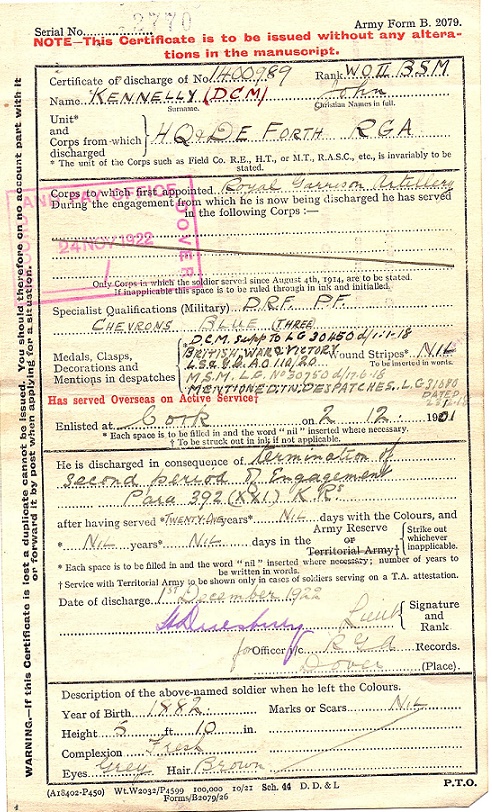 Serial No. 2770 Army Form B. 2079.
NOTE—This Certificate is to be issued without any altera-
tions in the manuscript.
Certificate of discharge of No. 1400989 Rank W.O.II B.S.M
Name KENNELLY (DCM) John
Surname. Christian Names in full.
Unit*
and
Corps from which
discharged
HQrs DE FORTH RGA
* The unit of the Corps such as Field Co. R.E., H.T., or M.T., R.A.S.C., etc., is invariably to be
stated.
Corps to which first appointed Royal Garrison Artillery
During the engagement from which he is now being discharged he has served
in the following Corps :—
AND PAY OFFICE
DOVER
24 NOV 1922
Only Corps in which the soldier served since August 4th, 1914, are to be stated.
If inapplicable this space is to be ruled through in ink and initialled.
Specialist Qualifications (Military) D.R.F. P.F.
CHEVRONS BLUE (THREE)
Medals, Clasps,
Decorations and
Mentions in despatches
D.C.M. Supp TO LG 30450 d/1-1-18
BRITISH WAR & VICTORY
L.S.&G.C. A.O 110/20
M.S.M. L.G. No 30750 d/17-6-18
MENTIONED IN DESPATCHES. L.G 31080
DATED
Wound Stripes* NIL
To be inserted in words.
Has served Overseas on Active Service†
Enlisted at Cork on 2 12 1901
* Each space is to be filled in and the word "nil" inserted where necessary.
† To be struck out in ink if not applicable.
He is discharged in consequence of termination of
second period of Engagement
Para 392 (XXI) K.Rs
after having served *TWENTY ONE years* NIL days with the Colours, and
* NIL years* NIL days in the Army Reserve
or
Territorial Army†
Strike out
whichever
inapplicable.
* Each space is to be filled in and the word "nil" inserted where necessary; number of years to
be written in words.
† Service with Territorial Army to be shown only in cases of soldiers serving on a T.A. attestation.
Date of discharge 1st December 1922
Lieut
Signature
and
Rank
for Officer i/c RGA Records.
Dover (Place).
Description of the above-named soldier when he left the Colours.
Year of Birth 1882 Marks or Scars NIL
Height 5 ft 10 in.
Complexion Fresh
Eyes Grey Hair Brown
(A18402-P450) Wt.W2032/P4599 100,000 10/21 Sch. 44 D. D. & L P.T.O.
Forms/B2079/26
WARNING.—If this Certificate is lost a duplicate cannot be issued. You should therefore on no account part with it
or forward it by post when applying for a situation.